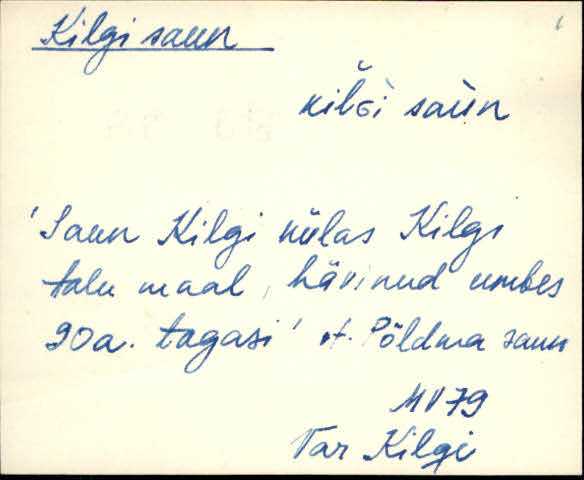 Kilgi saun
saun
'Saun Kilgi külas Kilgi
talu maal, hävinud umbes
90a. tagasi' vt. Põldma saun
MV79
Var Kilgi